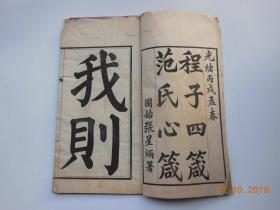 光緒丙戌孟春
程子四箴
范氏心箴
固始張星炳署
我則
10.2018